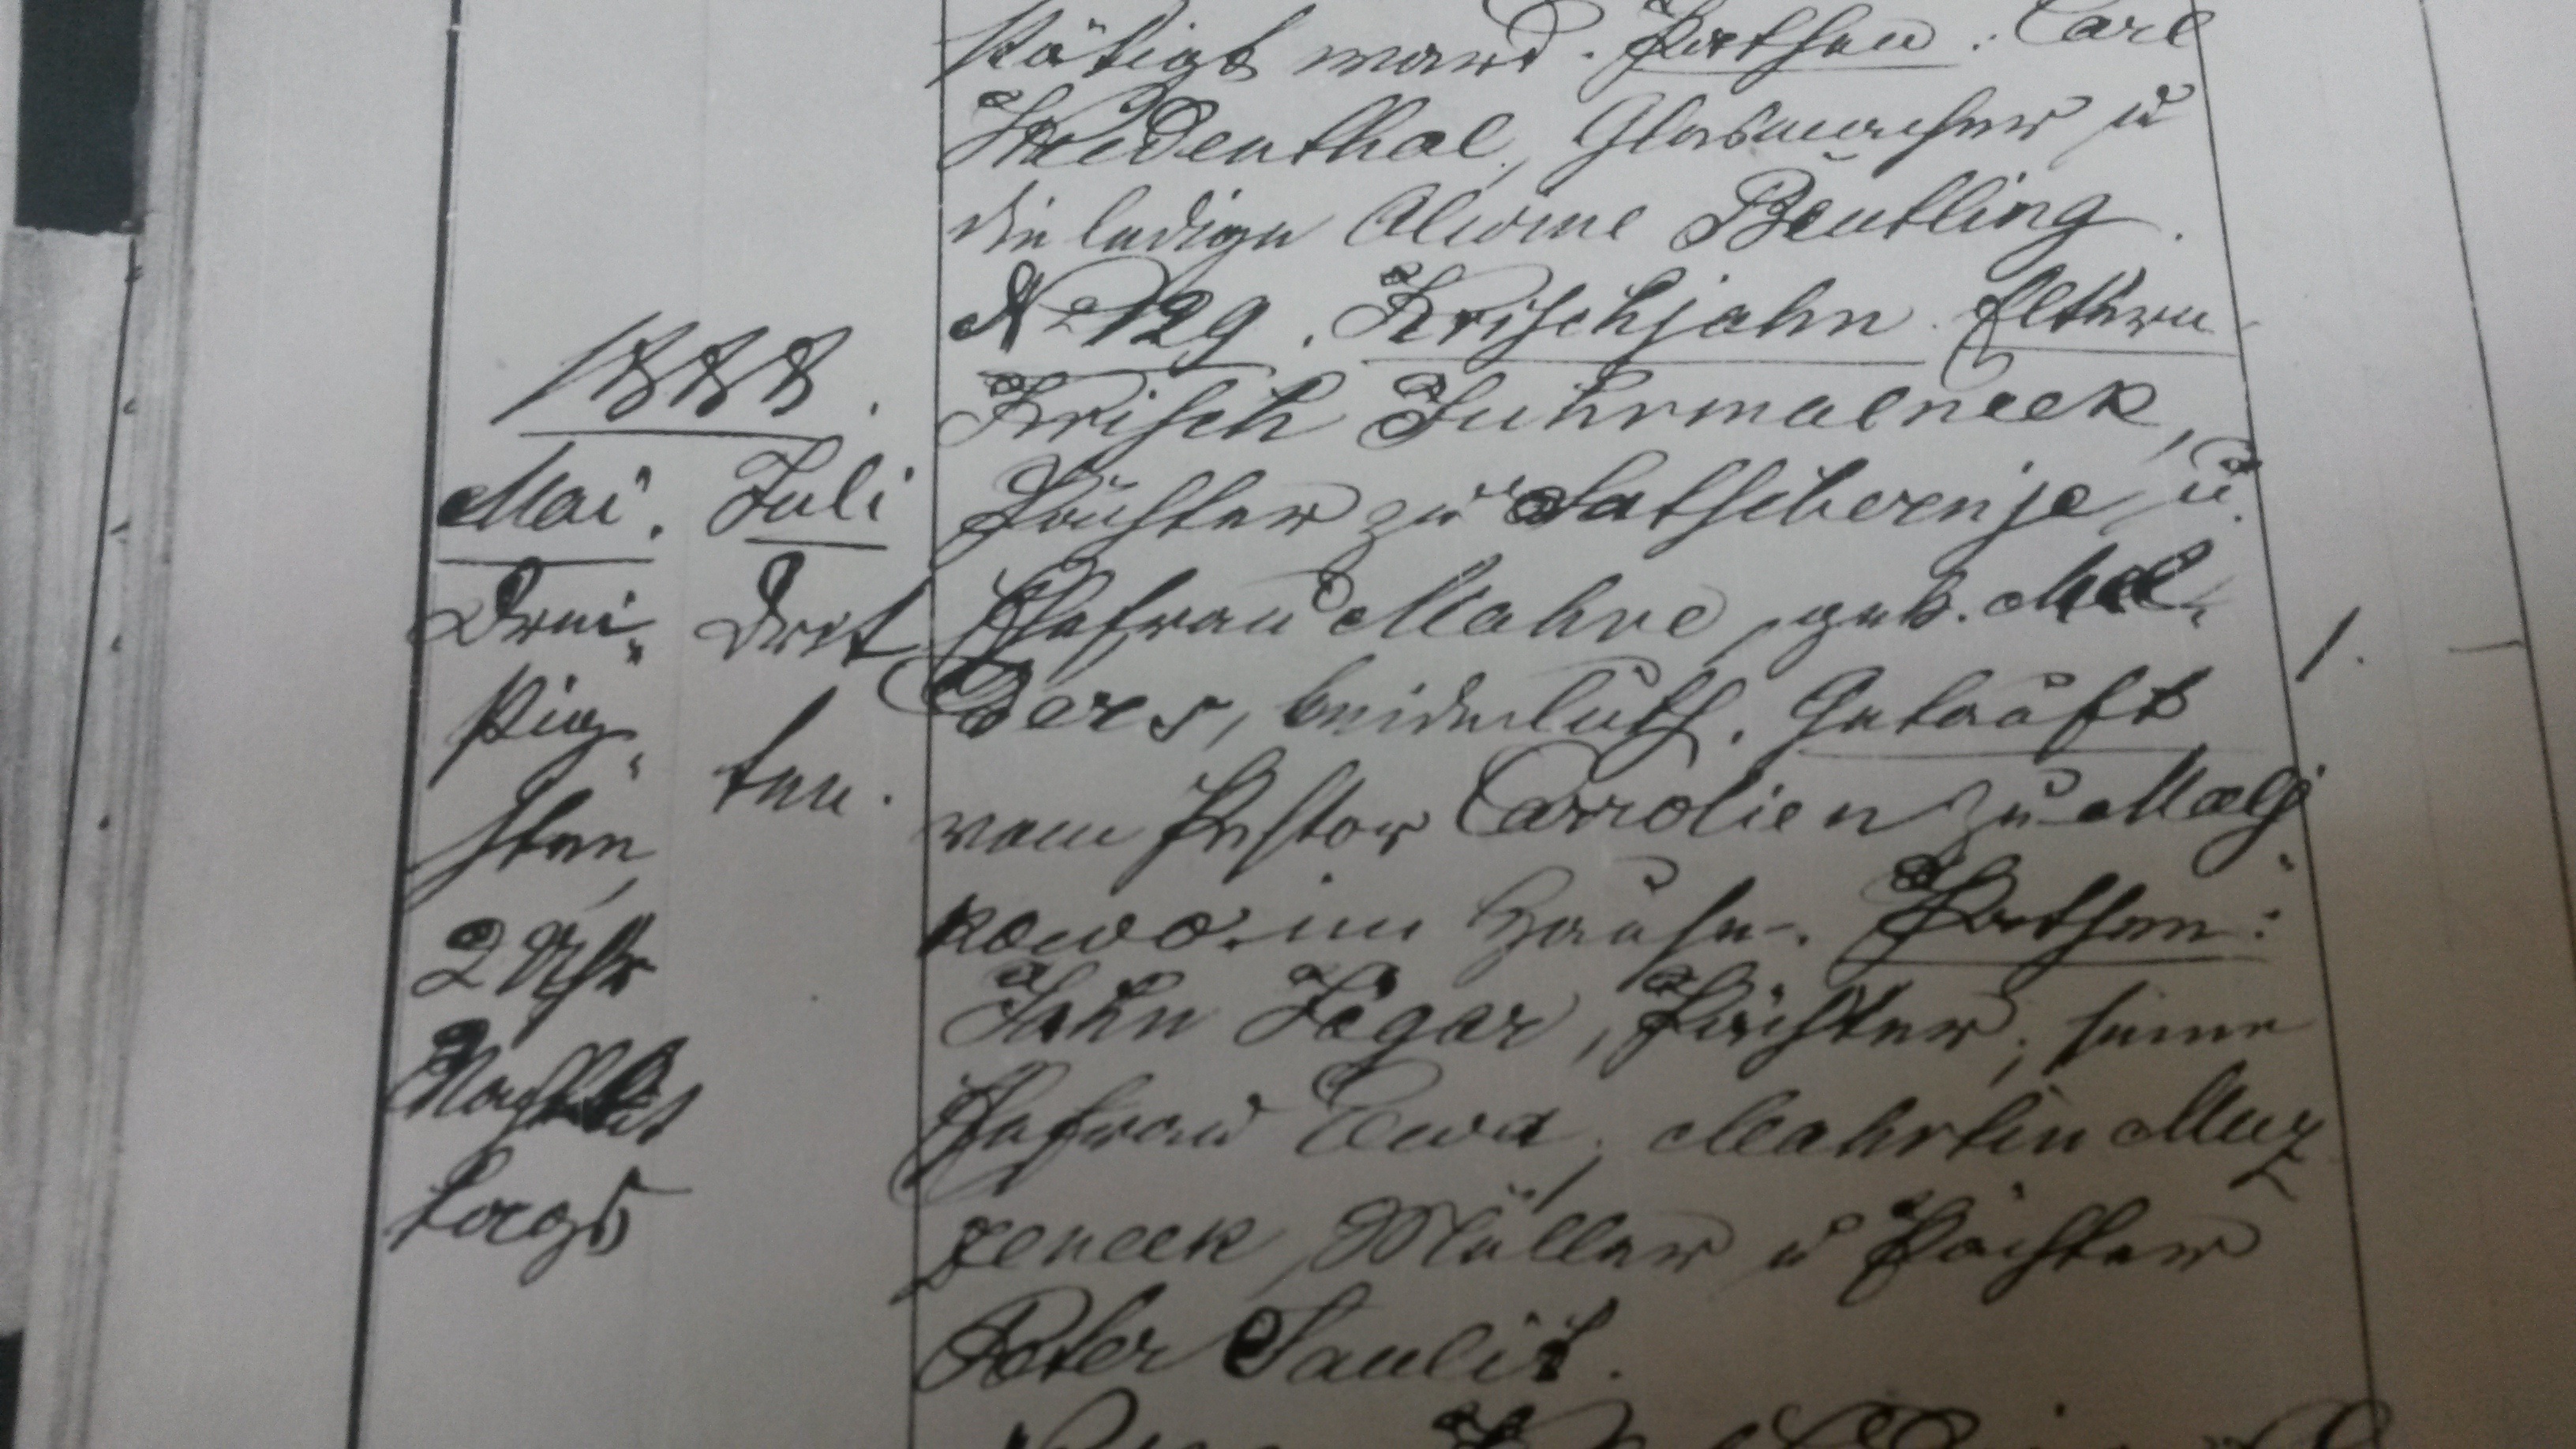 stätigt ward. Pathen: Carl
Weidenthal, Glasmacher u
die ledige Alwine Beutling.
1888.
Mai. Juli
Drei- Drit
ßig- ten.
sten
2 Uhr
Nachmit
tags
No 129. Krischjahn. Eltern
Krisch Juhrmalneek,
Pächter zu Satschernje, u.
Ehefrau Mahre, geb. Mel-
ders, beide luth. Getauft
vom Pastor Carrolien zu Malj
kowo im Hause. Pathen:
Jahn Jeger, Pächter; seine
Ehefrau Ewa; Mahrtin Muz
zeneek, Müller u Pächter
Peter Saulit.
1.